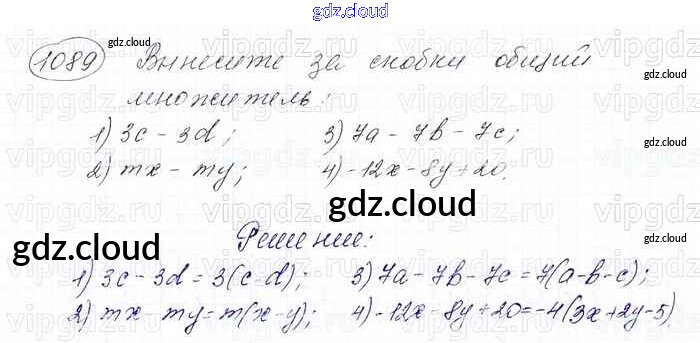 gdz.cloud
1089 Вынесите за скобки общий
gdz.cloud
gdz.cloud
множитель:
1) 3c - 3d; 3) 7a - 7b - 7c;
gdz.cloud
2) mx - my; 4) -12x - 8y + 20.
gdz.cloud
gdz.cloud
Решение:
gdz.cloud
1) 3c - 3d = 3(c-d); 3) 7a - 7b - 7c = 7(a-b-c);
2) mx - my = m(x-y); 4) -12x - 8y + 20 = -4(3x+2y-5)